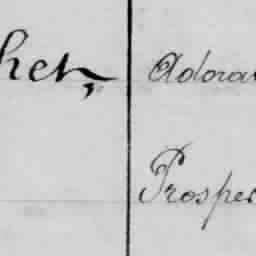 het, Adora
Prosper